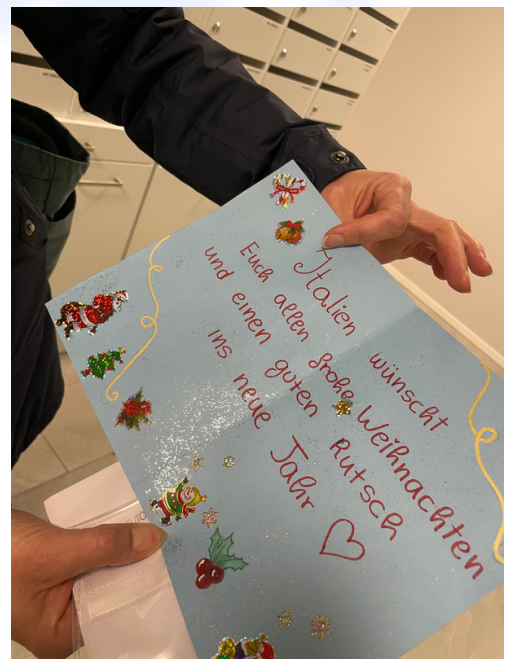 Italien wünscht
Euch allen frohe Weihnachten
und einen guten Rutsch
ins neue Jahr